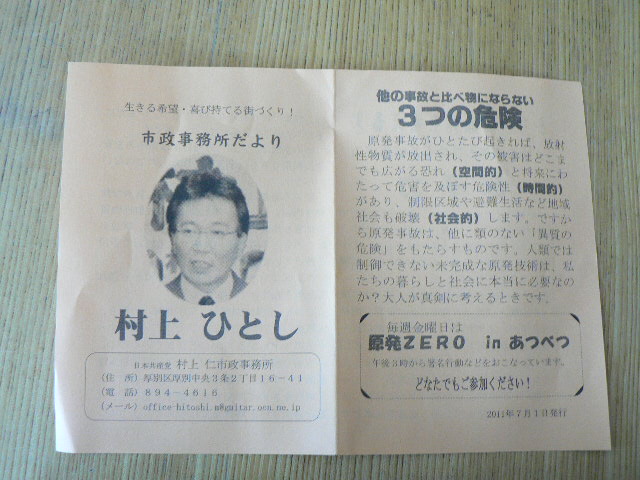 生きる希望・喜び持てる街づくり！
市政事務所だより
村上 ひとし
日本共産党 村上 仁市政事務所
（住 所）厚別区厚別中央3条2丁目16－41
（電 話）894－4616
（メール）office-hitoshi.m@guitar.ocn.ne.jp
他の事故と比べ物にならない
3つの危険
原発事故がひとたび起きれば、放射
性物質が放出され、その被害はどこま
でも広がる恐れ（空間的）と将来にわ
たって危害を及ぼす危険性（時間的）
があり、制限区域や避難生活など地域
社会も破壊（社会的）します。ですか
ら原発事故は、他に類のない「異質の
危険」をもたらすものです。人類では
制御できない未完成な原発技術は、私
たちの暮らしと社会に本当に必要なのか
か？大人が真剣に考えるときです。
毎週金曜日は
原発ZERO in あつべつ
午後3時から署名行動などをおこなっています。
どなたでもご参加ください！
7月1日発行